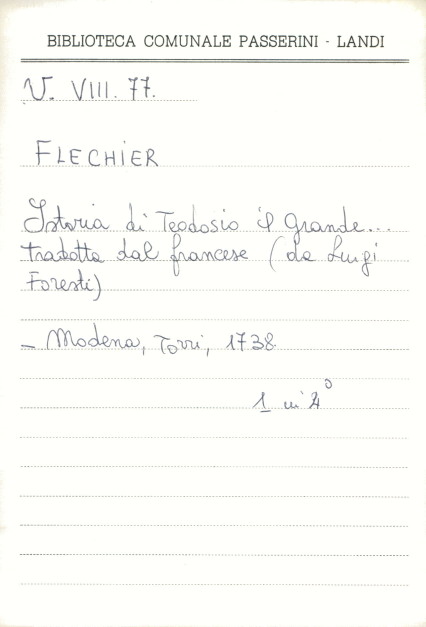 BIBLIOTECA COMUNALE PASSERINI - LANDI
V. VIII. 77.
FLECHIER
Istoria di Teodosio il Grande...
tradotta dal francese (da Luigi
Foresti)
- Modena, Torri, 1738
1 in 4°